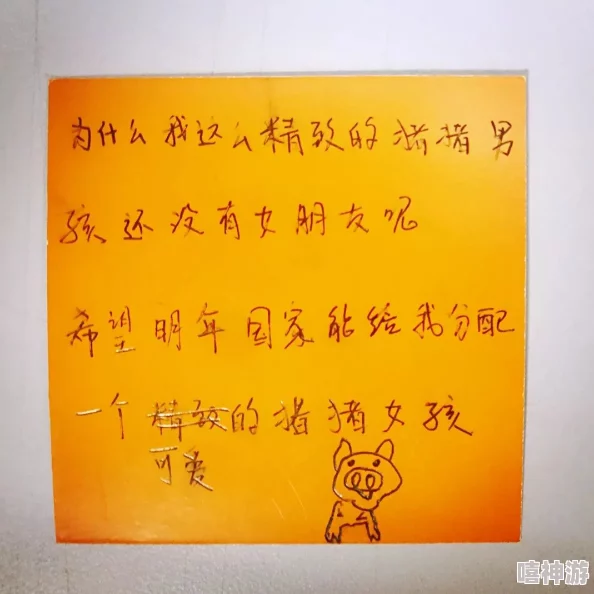 为什么我这么精致的猪猪男
孩还没有女朋友呢
希望明年国家能给我分配
一个精致的猪猪女孩
可爱
嘻神游